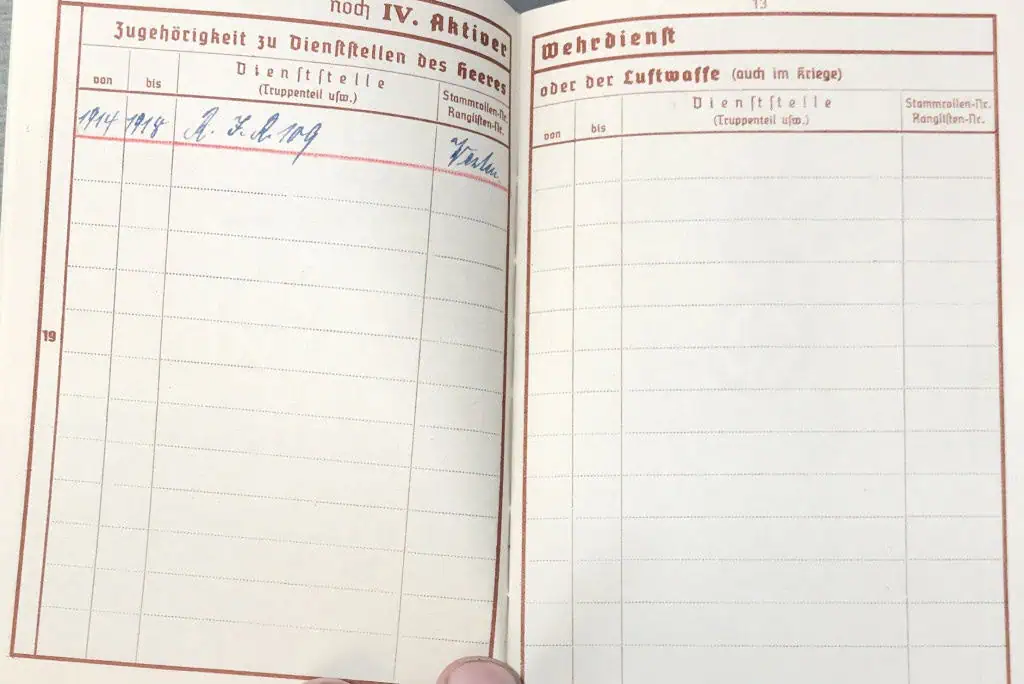 noch IV. Aktiver
Zugehörigkeit zu Dienststellen des Heeres
von
bis
Dienststelle
(Truppenteil usw.)
Stammrollen-Nr.
Ranglisten-Nr.
1914 1918 R. I. R. 109
19
13
Wehrdienst
oder der Luftwaffe (auch im Kriege)
von
bis
Dienststelle
(Truppenteil usw.)
Stammrollen-Nr.
Ranglisten-Nr.